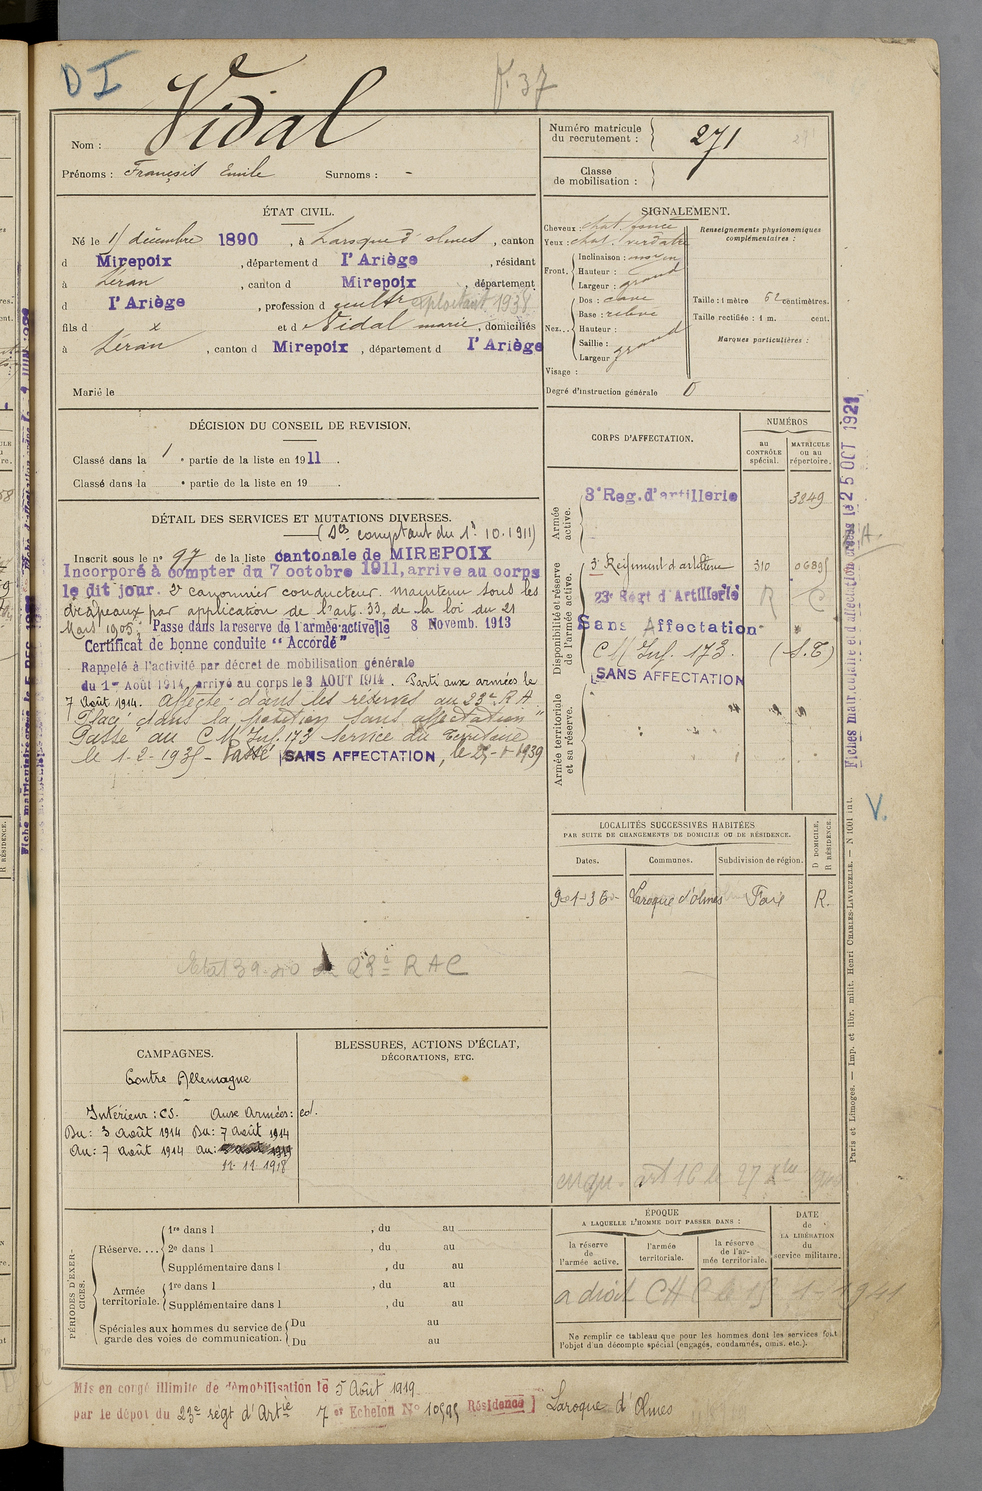 D I
f. 37
Nom : Vidal
Prénoms : François Emile Surnoms : -
Numéro matricule du recrutement : 271
Classe de mobilisation :
ÉTAT CIVIL.
Né le décembre 1890, à Laroque d'olmes, canton
d Mirepoix, département d l'Ariège, résidant
à Léran, canton d Mirepoix, département
d l'Ariège, profession d cultr exploitant 1938
fils d x et d Vidal marie, domiciliés
à Léran, canton d Mirepoix, département d l'Ariège
Marié le
SIGNALEMENT.
Cheveux : chat. foncé
Yeux : chat. verdatre
Front. Inclinaison : moyen
Hauteur : grand
Largeur :
Nez... Dos : cave
Base : relevé
Hauteur :
Saillie : grand
Largeur
Visage :
Degré d'instruction générale 0
Renseignements physionomiques complémentaires :
Taille : 1 mètre 62 centimètres.
Taille rectifiée : 1 m. cent.
Marques particulières :
DÉCISION DU CONSEIL DE REVISION.
Classé dans la 1 e partie de la liste en 1911.
Classé dans la e partie de la liste en 19 .
DÉTAIL DES SERVICES ET MUTATIONS DIVERSES.
(Ses comptant du 1er 10.1911)
Inscrit sous le n° 97 de la liste cantonale de MIREPOIX
Incorporé à compter du 7 octobre 1911, arrivé au corps
le dit jour. 2e canonnier conducteur. maintenu sous les
drapeaux par application de l'art. 33, de la loi du 21
Mars 1905. Passé dans la reserve de l'armée active le 8 Novemb. 1913
Certificat de bonne conduite "Accordé"
Rappelé à l'activité par décret de mobilisation générale
du 1er Août 1914, arrivé au corps le 3 AOUT 1914. Parti aux armées le
7 Août 1914. Affecté dans les réserves au 23e R A
Placé dans la position "sans affectation"
Passé au C M Inf. 173 Service du Territoire
le 1-2-1935 - Passé SANS AFFECTATION, le 1939
39-40 23e RAC
CORPS D'AFFECTATION.
NUMÉROS
au CONTRÔLE spécial.
MATRICULE ou au répertoire.
Armée active.
3e Reg. d'artillerie 3249
Disponibilité et réserve de l'armée active.
3e Régiment d'artillerie 310
23e Régt d'Artillerie R C
Sans Affectation
C M Inf. 173. (S.T)
SANS AFFECTATION
Armée territoriale et sa réserve.
Fiches matriculaire et d'affectation créées le 25 OCT 1921
V.
LOCALITÉS SUCCESSIVES HABITÉES
PAR SUITE DE CHANGEMENTS DE DOMICILE OU DE RÉSIDENCE.
Dates. Communes. Subdivision de région. D DOMICILE. R RÉSIDENCE.
9-1-36 Laroque d'olmes Foix R.
CAMPAGNES.
Contre Allemagne
Intérieur : CS. Aux Armées : CD.
Du : 3 Août 1914 Du : 7 Août 1914
Au : 7 août 1914 Au :
11-11-1918
BLESSURES, ACTIONS D'ÉCLAT,
DÉCORATIONS, ETC.
art 16 le 27
PÉRIODES D'EXERCICES.
Réserve.... 1re dans l , du au
2e dans l , du au
Supplémentaire dans l , du au
Armée territoriale. 1re dans l , du au
Supplémentaire dans l , du au
Spéciales aux hommes du service de garde des voies de communication. Du au
Du au
ÉPOQUE
A LAQUELLE L'HOMME DOIT PASSER DANS :
la réserve de l'armée active.
l'armée territoriale.
la réserve de l'armée territoriale.
DATE de LA LIBÉRATION du service militaire.
a droit C 1941
Ne remplir ce tableau que pour les hommes dont les services font l'objet d'un décompte spécial (engagés, condamnés, omis, etc.).
Paris et Limoges. — Imp. et libr. milit. Henri CHARLES-LAVAUZELLE. — N 1001 int.
Mis en congé illimité de démobilisation le 5 Août 1919
par le dépôt du 23e régt d'Artie 7 er Echelon N° Résidence Laroque d'Olmes